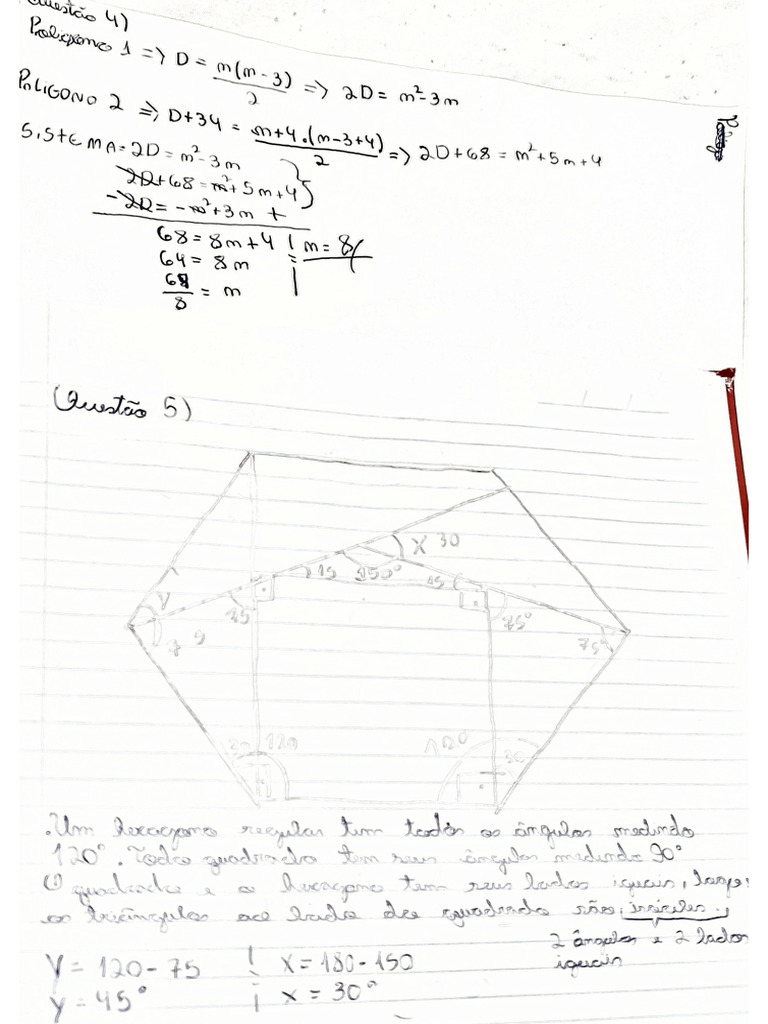 Questão 4)
Polígono 1 => D = m(m-3)/2 => 2D = m²-3m
POLIGONO 2 => D+34 = m+4.(m-3+4)/2 => 2D+68 = m²+5m+4
SISTEMA = 2D = m²-3m
2D+68 = m²+5m+4
-2D = -m²+3m +
68 = 8m+4 | m = 8
64 = 8m
/8 = m
Questão 5)
X 30
15 150° 15
y
75 75°
75°
30 120 120 30
.Um hexagono regular tem todos os ângulos medindo
120°. Todo quadrado tem seus ângulos medindo 90°
O quadrado e o hexagono tem seus lados iguais, logo,
os triângulos ao lado do quadrado são, isósceles.,
2 ângulos e 2 lados
iguais
Y = 120-75 | X = 180-150
y = 45° | x = 30°